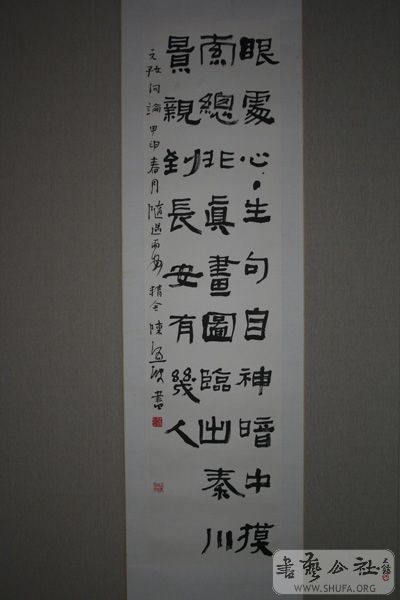 眼處心生句自神暗中摸
索總非真畫圖臨出秦川
景親到長安有幾人
元好问論甲申春月隨遇而安精舍陳書
書藝公社
WWW.SHUFA.ORG